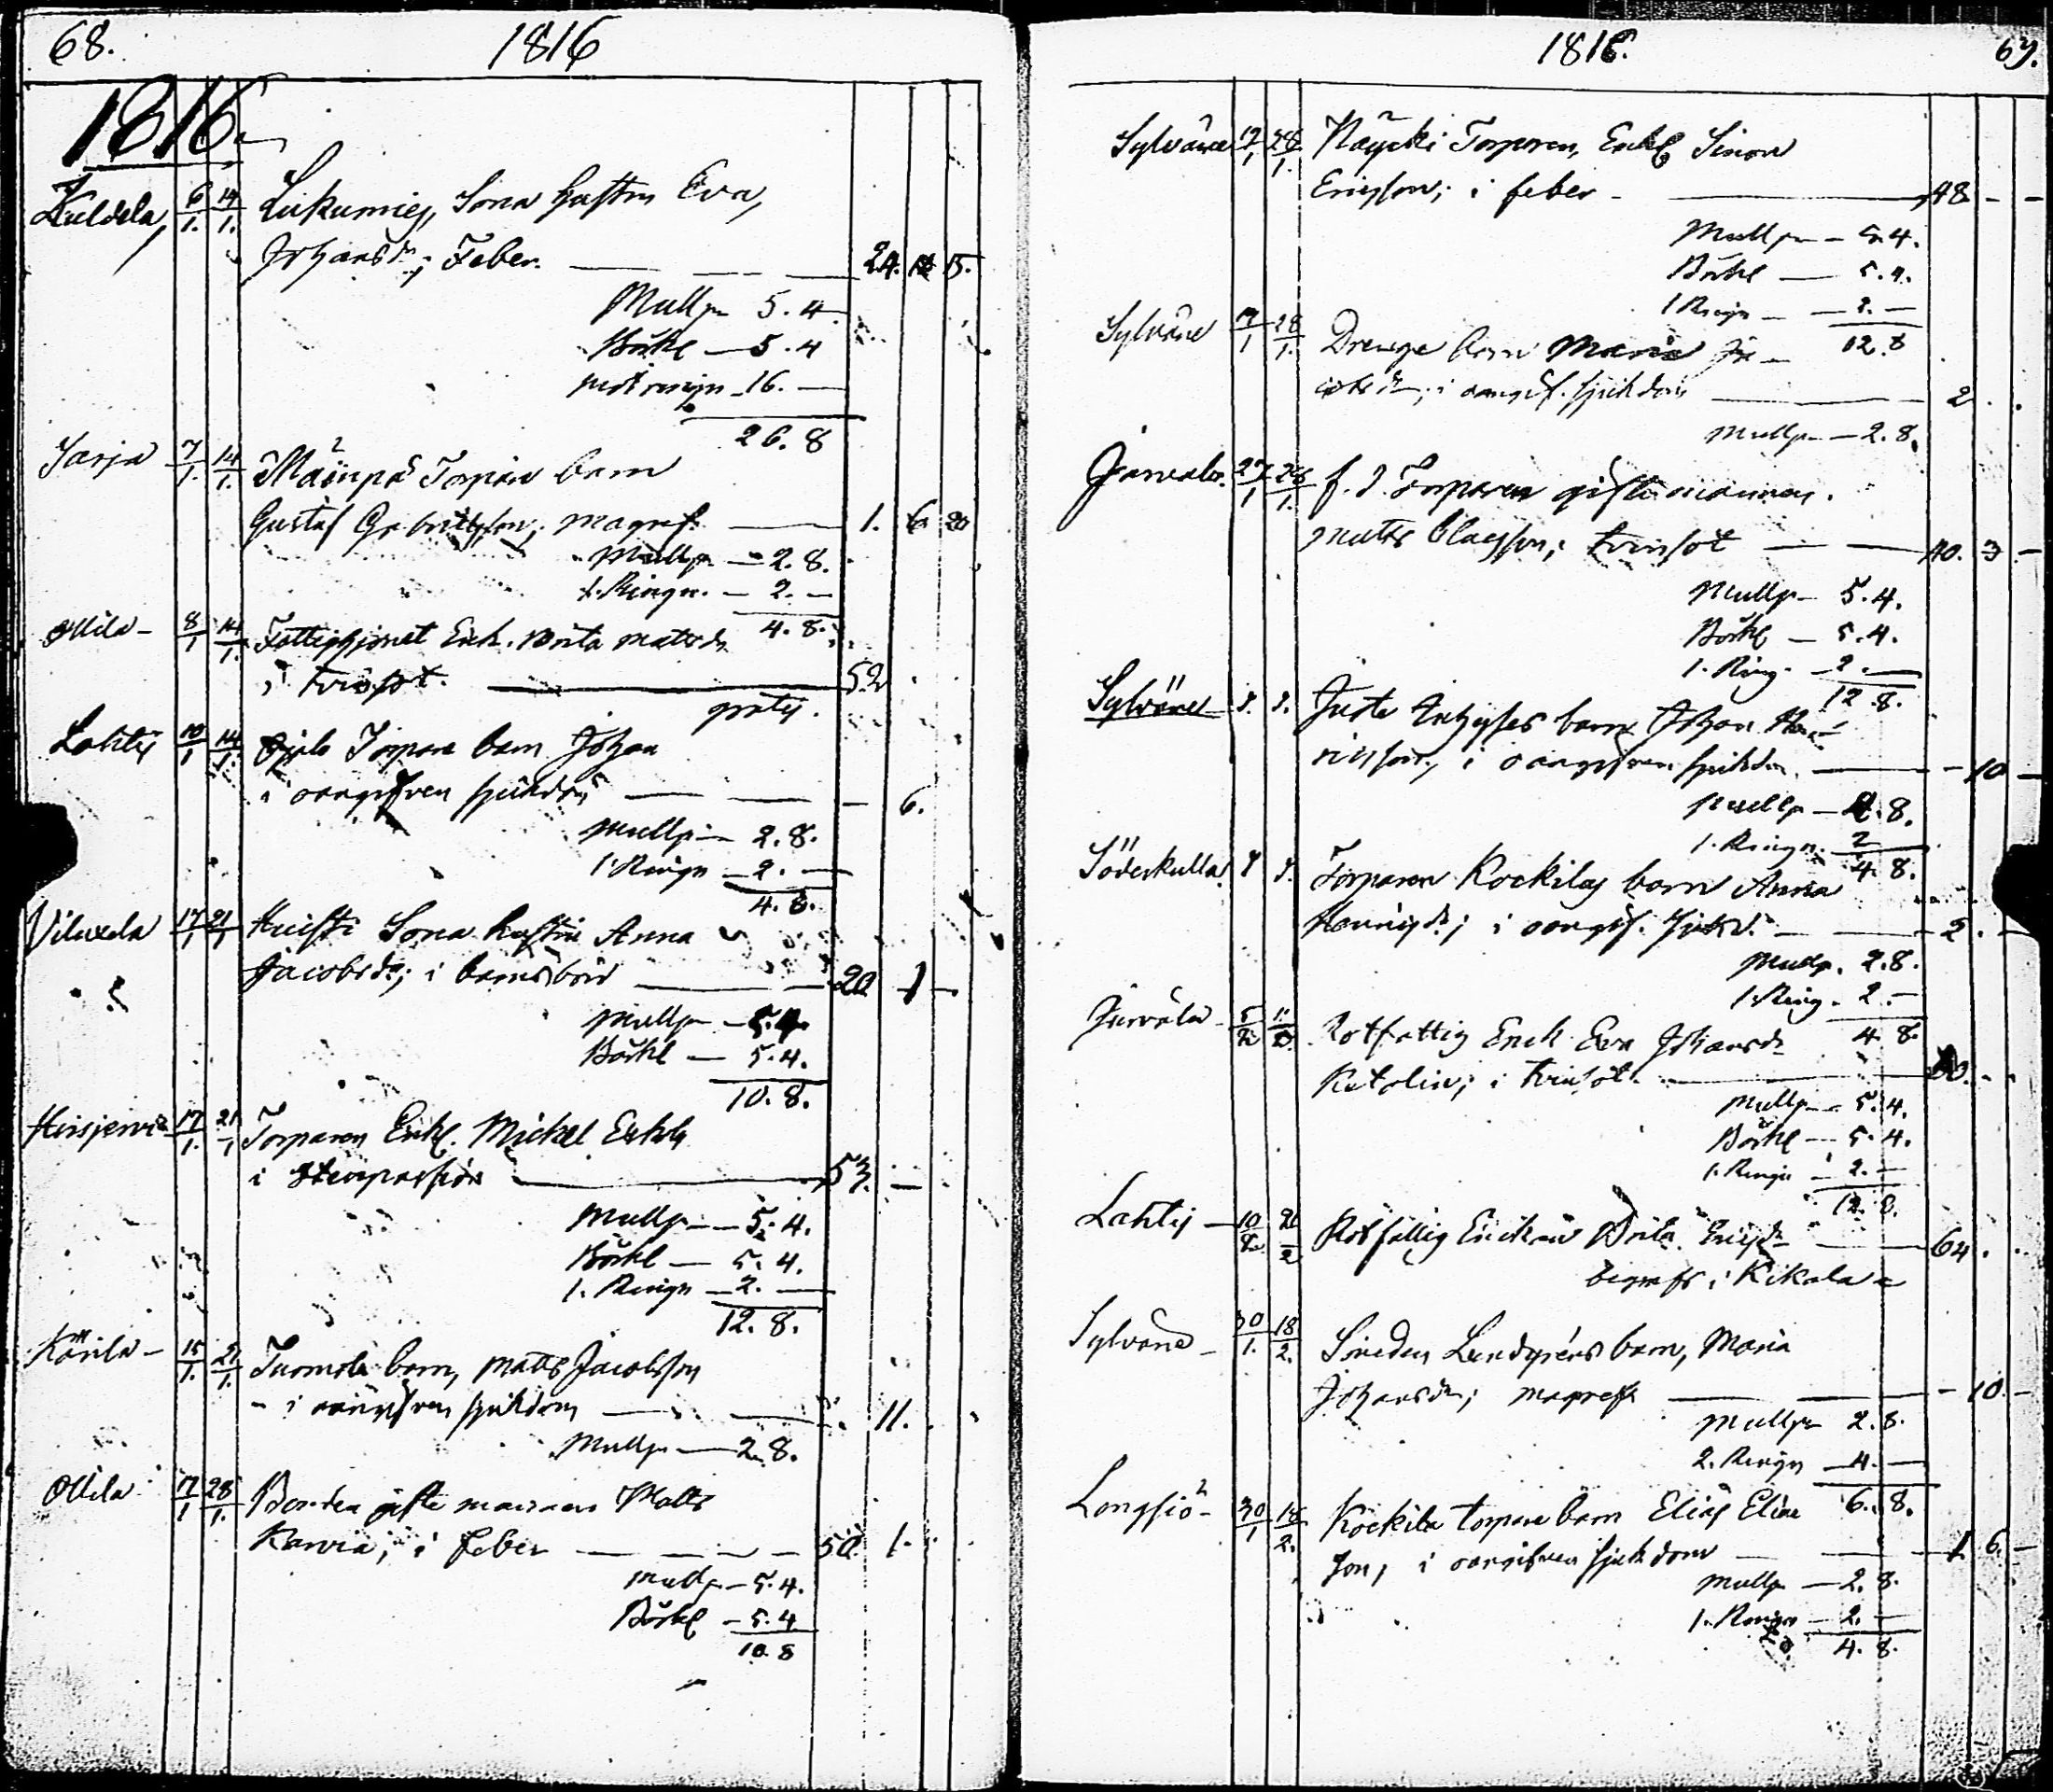 68. 1816
1816.
Kuldela, 6/1. 14/1. Lukumies, Sona hustru Eva,
Johansdr; Feber. 24. 15.
Mullp 5. 4.
Bårkl 5. 4
16.
26. 8
Sarja 7/1. 14/1. Mäenpä Torpare barn
Gustaf; magref. 1. 6 20
Mullp 2. 8.
1. Ringn. 2.
4. 8.
Ollila 8/1 14/1. Fattighjonet Enk. Brita Matsdr
i tvinsot. 52
gratis.
Lahty 10/1 14/1. Torpare barn Johan
i oangifven sjukdom 6.
Mullp 2. 8.
1. Ringn 2.
4. 8.
Viluxela 17/1 21/1 Huisti Sona hustru Anna
Jacobsdr; i barnsbörd 20 1
Mullp 5. 4.
Bårkl 5. 4.
10. 8.
Hirsjervi 17/1. 21/1 Torparen Enkl. Mickel
i 53.
Mullp 5. 4.
Bårkl 5. 4.
1. Ringn 2.
12. 8.
Kärila 15/1. 21/1. Tuomola barn, Matts Jacobsson
i oangifven sjukdom 11.
Mullp 2. 8.
Ollila 17/1 28/1. Bonden gifte mannen Matts
Karvia; i feber 50. 1.
Mullp 5. 4.
Bårkl 5. 4
10 8
1816. 69.
Sylvänä 28/1. Näycki Torparen, Enkl Simon
Ericsson; i feber 48
Mullp 5. 4.
Bårkl 5. 4.
1 Ringn 2.
12. 8
Sylvänä 28/1. Drenge barn Maria Ja-
cobsdr; i oangif. sjukdom 2
Mullp 2. 8.
Jarvala 27/1 28/1. f. d. Torparen gifte mannen.
Matts Claesson; tvinsot 40. 3
Mullp 5. 4.
Bårkl 5. 4.
1. Ring. 2.
12. 8.
Sylvänä d. d. Juste Inhyses barn Johan Hen-
ricsson, i oangifven sjukdom. 10
Mullp 2. 8.
1. Ringn. 2
4. 8.
Söderkulla d d. Torparen Kockilas barn Anna
Henricsdr; i oangif. sjukd. 2.
Mullp. 2. 8.
1. Ring. 2.
4. 8.
Jarvala 5/2 11/2. Rotfattig Enck Eva Johansdr
Katolin; i tvinsot. 80.
Mullp 5. 4.
Bårkl 5. 4.
1. Ringn 2.
12. 8.
Lahty 10/2 Rotfattig Enckan Brita Ericsdr 64.
begrafs i Kikala
Sylvänä 30/1. 18/2. Smeden barn, Maria
Johansdr; magref 10.
Mullp 2. 8.
2. Ringn 4.
6. 8.
Longsiö 30/1 18/2. Kockila torpare barn Elias Elias
son, i oangifven sjukdom 1 6.
Mullp 2. 8.
1. Ringn 2.
4. 8.